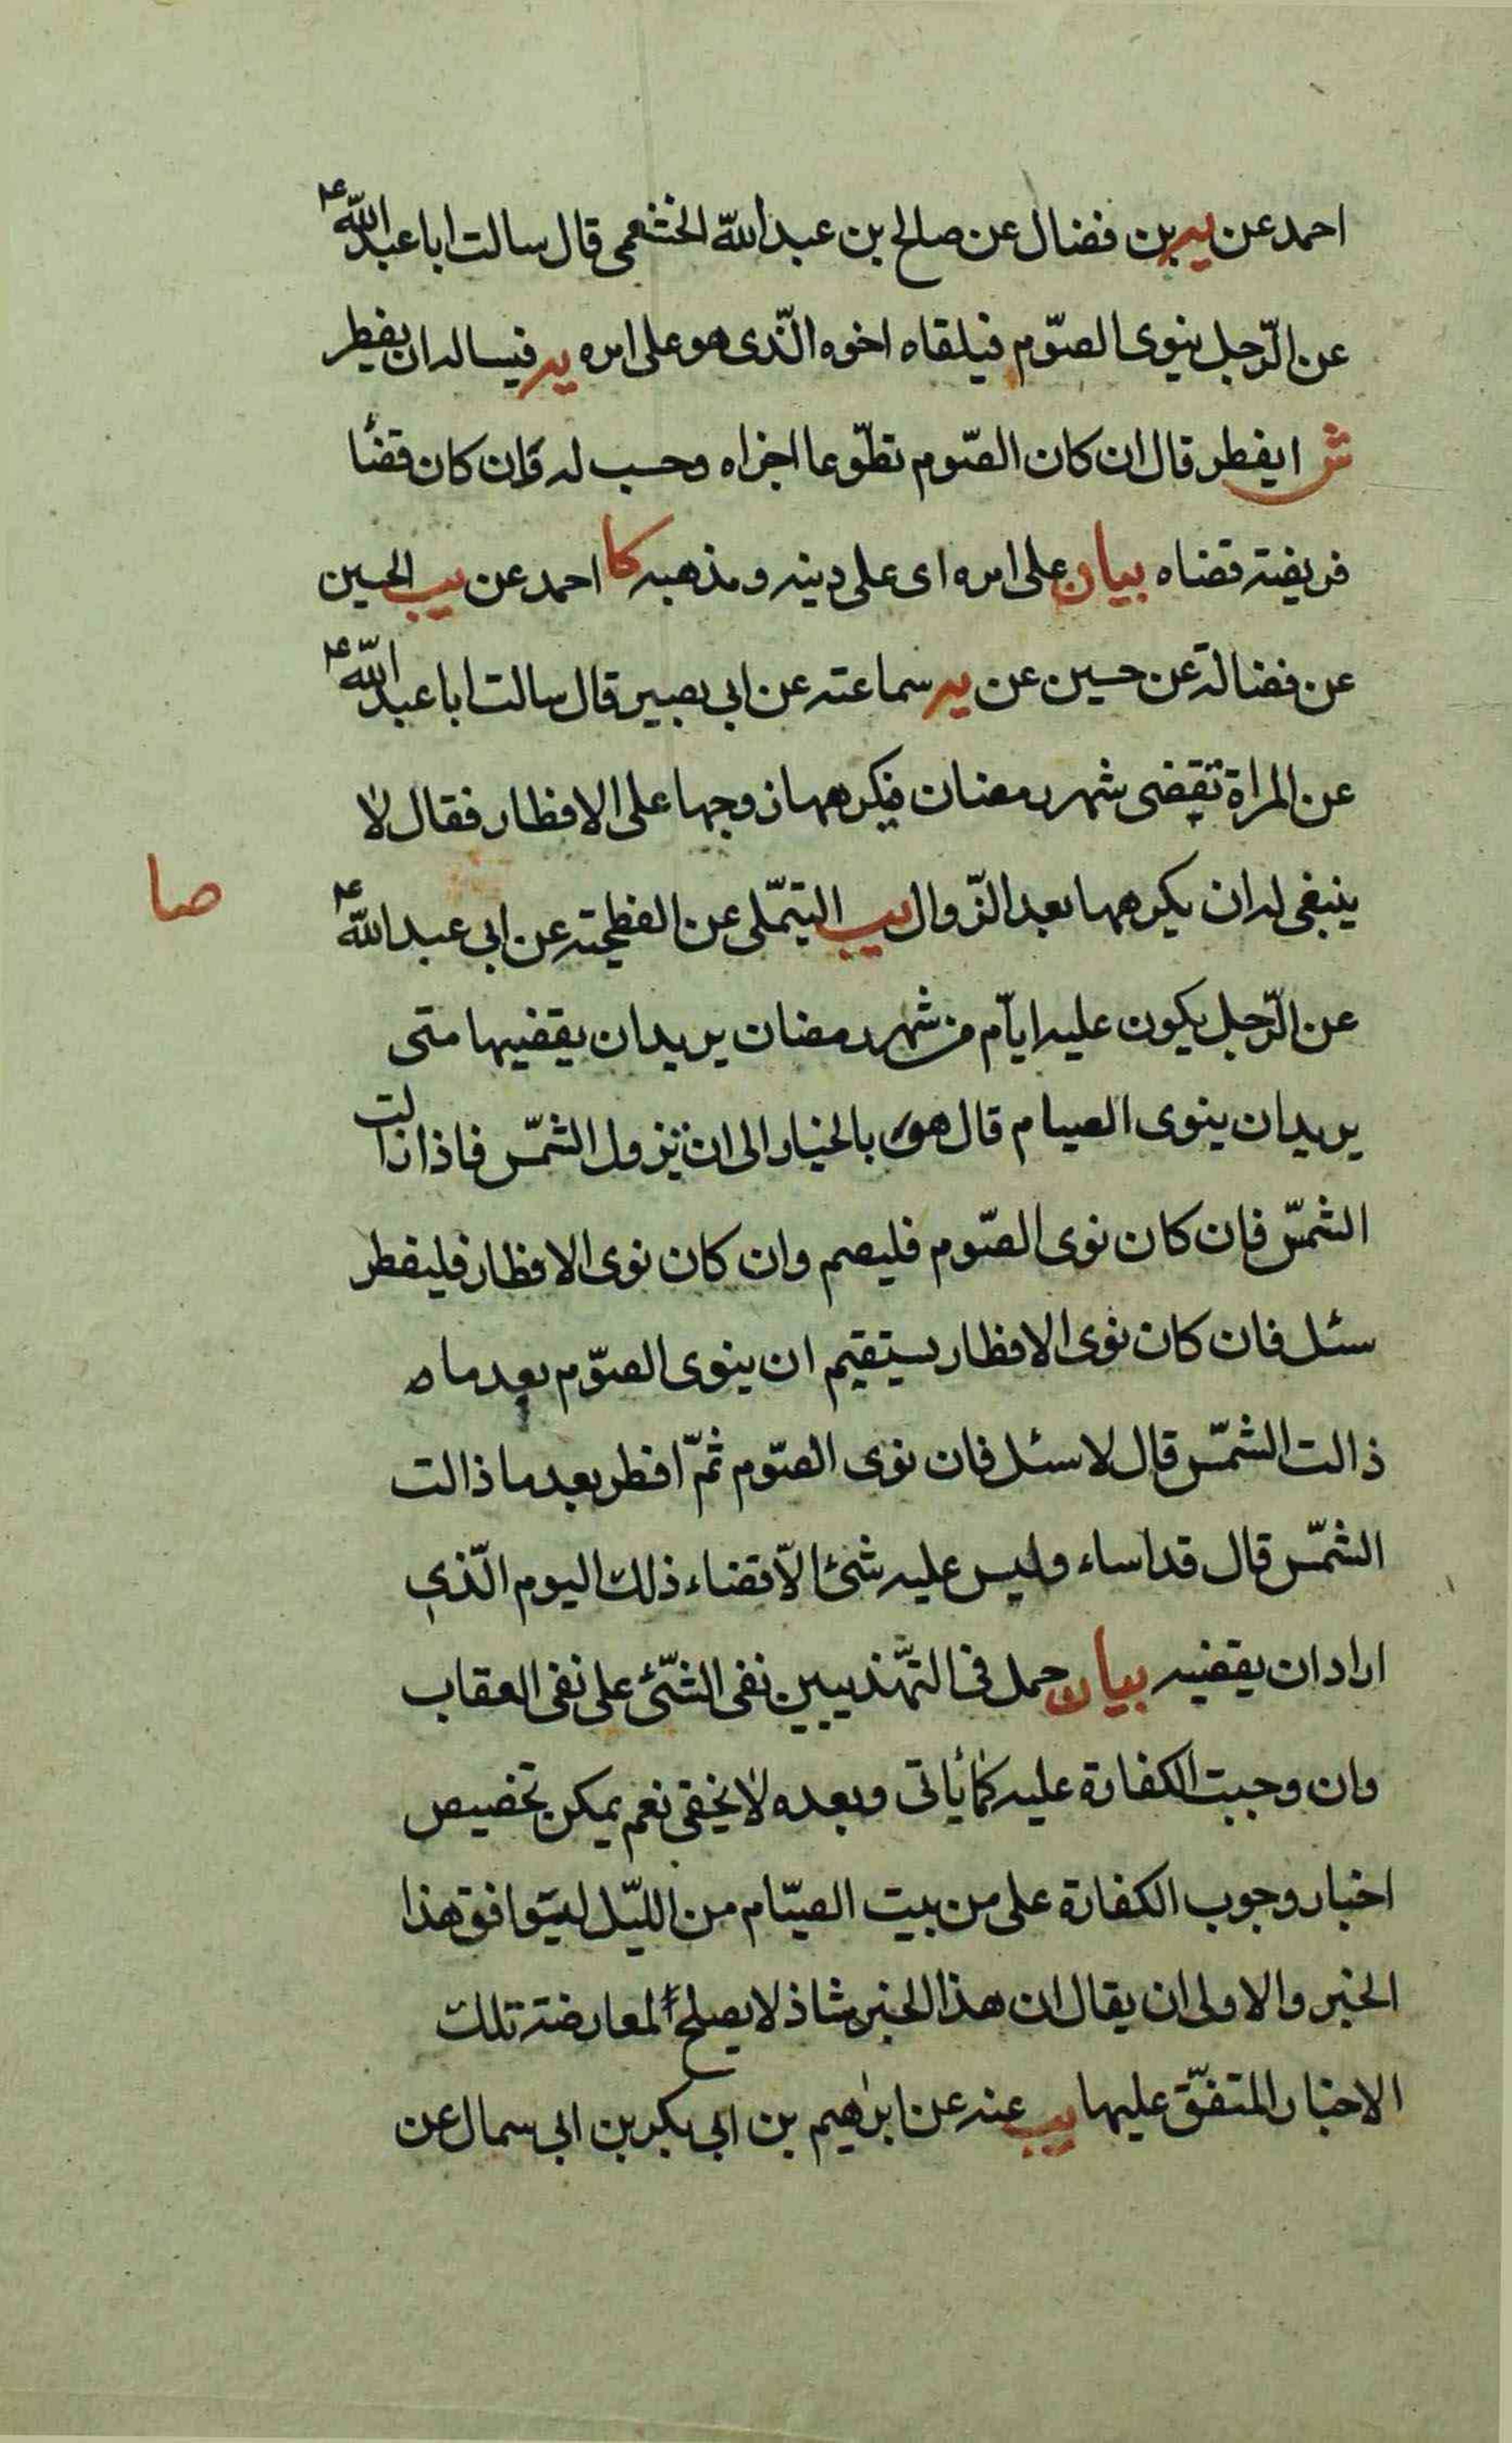 احمد عن يه بن فضال عن صالح بن عبد الله الخثعمى قال سالت ابا عبد الله ع
عن الرّجل ينوى الصّوم فيلقاه اخوه الّذى هو على امره يه فيساله ان يفطر
ش ايفطر قال ان كان الصّوم تطوّعا اجزاه وحسب له وان كان قضا
فريضة قضاه بيان على امره اى على دينه ومذهبه كا احمد عن يب الحسين
عن فضالة عن حسين عن يه سماعته عن ابى بصير قال سالت ابا عبد الله ع
عن المراة تقضى شهر رمضان فيكرهها زوجها على الافطار فقال لا
ينبغى له ان يكرهها بعد الزّوال يب التيّملى عن الفطحيّة عن ابى عبد الله ع
صا
عن الرّجل يكون عليه ايّام من شهر رمضان يريد ان يقضيها متى
يريد ان ينوى الصيام قال هو بالخيار الى ان تزول الشمّس فاذا زالت
الشمّس فان كان نوى الصّوم فليصم وان كان نوى الافطار فليفطر
سئل فان كان نوى الافطار يستقيم ان ينوى الصّوم بعد ما ه
ذالت الشمّس قال لا سئل فان نوى الصّوم ثمّ افطر بعد ما ذالت
الشمّس قال قد اساء وليس عليه شئ الّا قضاء ذلك اليوم الّذى
اراد ان يقضيه بيان حمل فى التهّذيبين نفى الشّئ على نفى العقاب
وان وجبت الكفارة عليه كما ياتى وبعده لا يخفى نعم يمكن تخصيص
اخبار وجوب الكفارة على من بيت الصيّام من الليّل ليتوافق هذا
الخبر والاولى ان يقال ان هذا الخبر شاذ لا يصلح لمعارضة تلك
الاخبار المتفّق عليها يب عنه عن ابرٰهيم بن ابى بكر بن ابى سمال عن